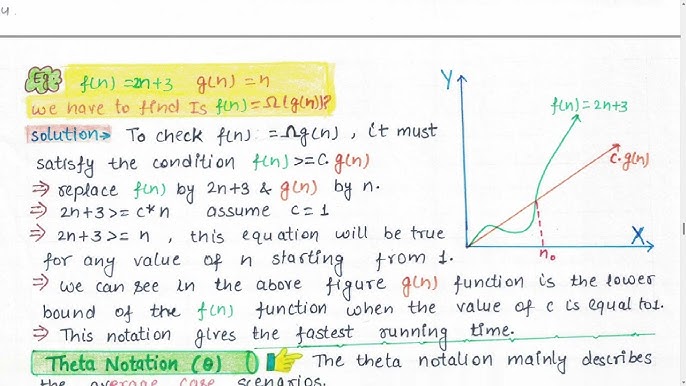 4.
Eg:- f(n) = 2n+3 g(n) = n
we have to find Is f(n) = Ω(g(n))?
solution→ To check f(n) = Ωg(n), it must
satisfy the condition f(n) >= c. g(n)
⇒ replace f(n) by 2n+3 & g(n) by n.
⇒ 2n+3 >= c*n assume c=1
⇒ 2n+3 >= n, this equation will be true
for any value of n starting from 1.
⇒ we can see in the above figure g(n) function is the lower
bound of the f(n) function when the value of c is equal to 1.
⇒ This notation gives the fastest running time.
Theta Notation (θ) The theta notation mainly describes
the average case scenarios.
Y
f(n) = 2n+3
c.g(n)
X
n₀